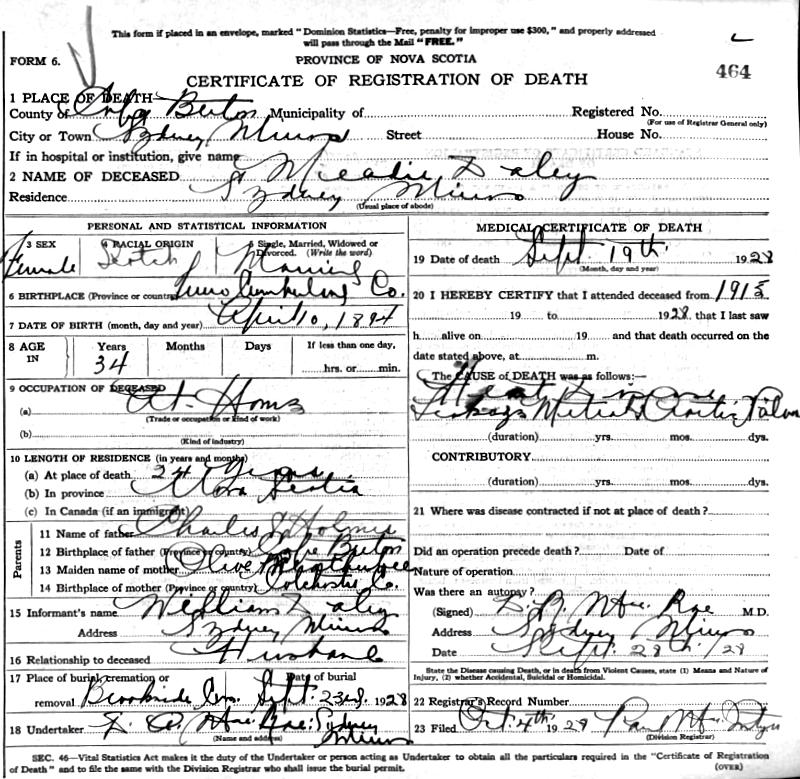 This form if placed in an envelope, marked "Dominion Statistics—Free, penalty for improper use $300," and properly addressed
will pass through the Mail "FREE."
FORM 6.
PROVINCE OF NOVA SCOTIA
464
CERTIFICATE OF REGISTRATION OF DEATH
1 PLACE OF DEATH—
County of Cape Breton Municipality of Registered No.
(For use of Registrar General only)
City or Town Sydney Mines Street House No.
If in hospital or institution, give name
2 NAME OF DECEASED Daley
Residence Sydney Mines
(Usual place of abode)
PERSONAL AND STATISTICAL INFORMATION
3 SEX 4 RACIAL ORIGIN 5 Single, Married, Widowed or
Divorced. (Write the word)
Female Scotch Married
6 BIRTHPLACE (Province or country) Cumberland Co.
7 DATE OF BIRTH (month, day and year) April 10, 1894
8 AGE IN Years Months Days If less than one day,
34 hrs. or min.
9 OCCUPATION OF DECEASED
(a) At Home
(Trade or occupation or kind of work)
(b)
(Kind of industry)
10 LENGTH OF RESIDENCE (in years and months)
(a) At place of death 24 Years
(b) In province Nova Scotia
(c) In Canada (if an immigrant)
Parents
11 Name of father Charles Holmes
12 Birthplace of father (Province or country) Cape Breton
13 Maiden name of mother Olive
14 Birthplace of mother (Province or country) Colchester Co.
15 Informant's name William Daley
Address Sydney Mines
16 Relationship to deceased Husband
17 Place of burial, cremation or removal Date of burial
Brookside Cem. Sept. 23rd 1928
18 Undertaker Sydney Mines
(Name and address)
MEDICAL CERTIFICATE OF DEATH
19 Date of death Sept. 19th 1928
(Month, day and year)
20 I HEREBY CERTIFY that I attended deceased from 1915
19 to 1928 that I last saw
h alive on 19 and that death occurred on the
date stated above, at m.
The CAUSE OF DEATH was as follows:—
Heart
(duration) yrs. mos. dys.
CONTRIBUTORY
(duration) yrs. mos. dys.
21 Where was disease contracted if not at place of death?
Did an operation precede death? Date of
Nature of operation
Was there an autopsy?
(Signed) Mac Rae M.D.
Address Sydney Mines
Date Sept. 28th /28
State the Disease causing Death, or in death from Violent Causes, state (1) Means and Nature of
Injury, (2) whether Accidental, Suicidal or Homicidal.
22 Registrar's Record Number
23 Filed Oct 4th 1928
(Division Registrar)
SEC. 46—Vital Statistics Act makes it the duty of the Undertaker or person acting as Undertaker to obtain all the particulars required in the "Certificate of Registration
of Death" and to file the same with the Division Registrar who shall issue the burial permit.
(OVER)